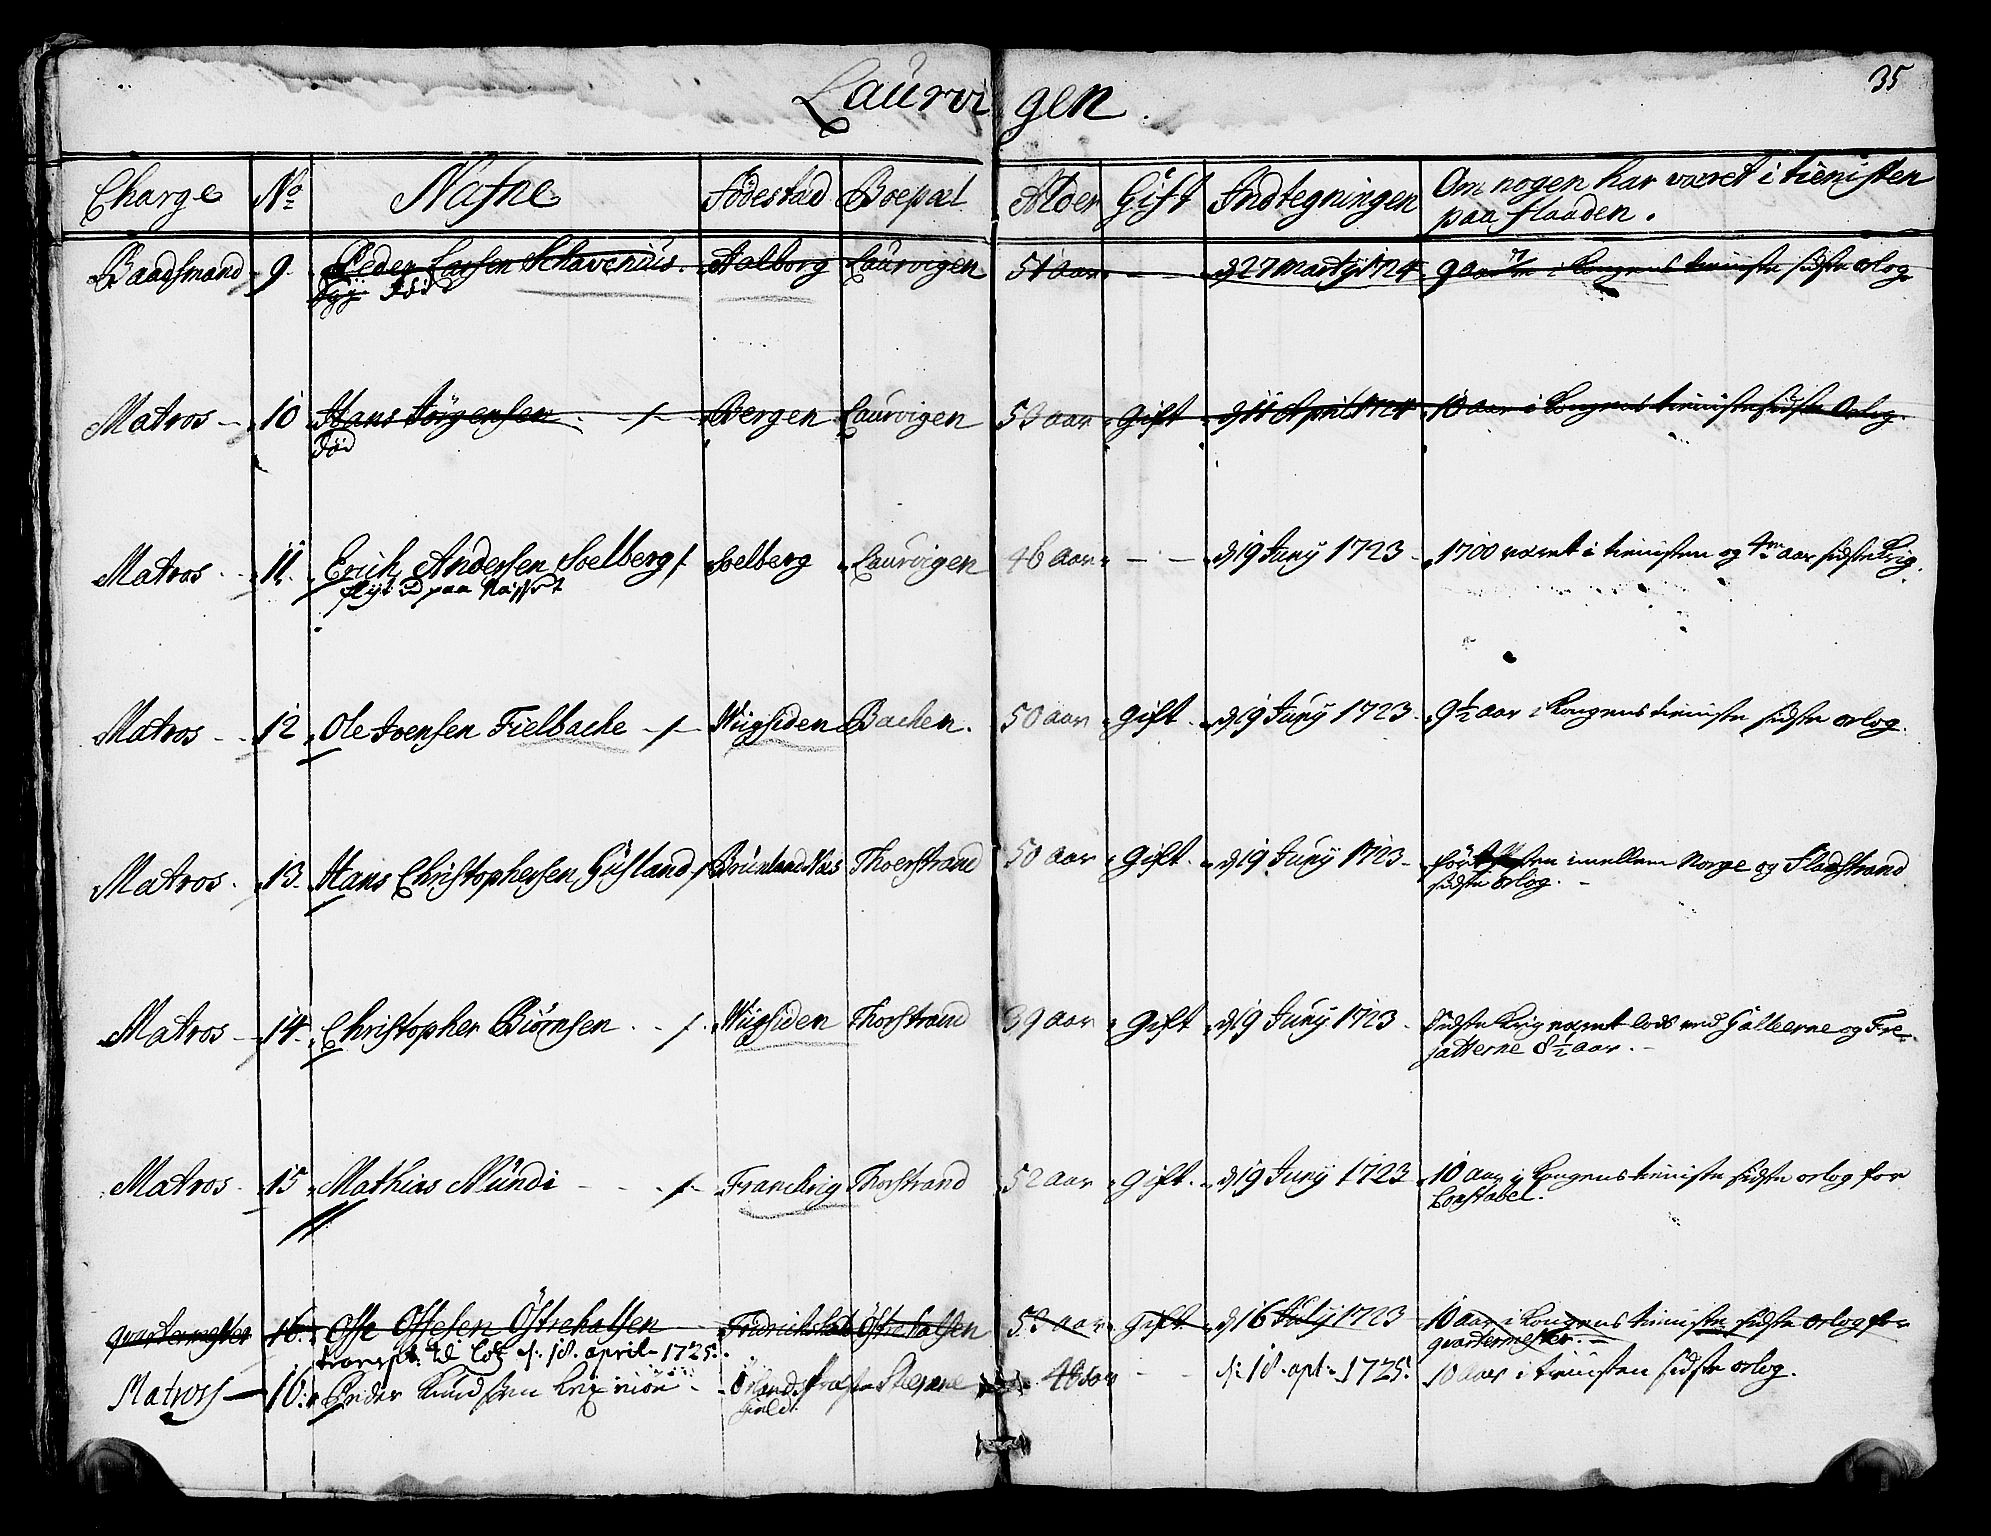 Laurvigen.
35
Charge No Nafne Födestad Boepæl Alder Gift Indtegningen Om nogen har været i tienisten
paa flaaden.
Baadsmand 9. Peder Larsen Schavenius. Aalborg Laurvigen 51 aar - - d 27 Marty 1724 9 aar i Kongens tieniste sidste orlog
Död
Matros - 10 Hans Jörgensen - /- Bergen Laurvigen 53 aar Gift d 11 April 1724 10 aar i Kongens tieniste sidste Orlog.
död
Matros - 11. Erich Andersen Soelberg /. Soelberg Laurvigen 46 aar - - d 19 Juny 1723 - 1700 været i tienisten og 4re aar sidste Krig.
flyt ud paa
Matros - 12 Ole Ivensen Fielbache -/- Wiigsiden Bachen. 50 aar Gift. d 19 Juny 1723 - 9½ aar i Kongens tieniste sidste orlog.
Matros. 13. Hans Christophersen Güsland / Brunland Næs Thoerstrand 50 aar Gift. d 19 Juny 1723 - imellem Norge og Fladstrand
sidste orlog. -
Matros - 14. Christopher Biörnsen. - /. Wiigsiden Thorstrand 39 aar Gift d 19 Juny 1723 - Sidste Krig været lods med Galleerne og Fre-
gatterne 8½ aar. -
Matros - 15 Mathias Mündi - - - /- Franchrig Thorstrand 52 aar Gift. d 19 Juny 1723 10 aar i Kongens tieniste sidste orlog for
Constabel.
qvartermester 16. Offe Offesen Östrehalsen Fridrichshald Östrehalsen 53 aar Gift. d 16 July 1723 - 10 aar i Kongens tieniste sidste orlog for
qvartermester. -
transpt. til d: 18. april - 1725.
Matross - 16. Peder Knudsen Steyerne 48 aar - - d: 18 apl - 1725. 10 aar i tienisten sidste orlog.